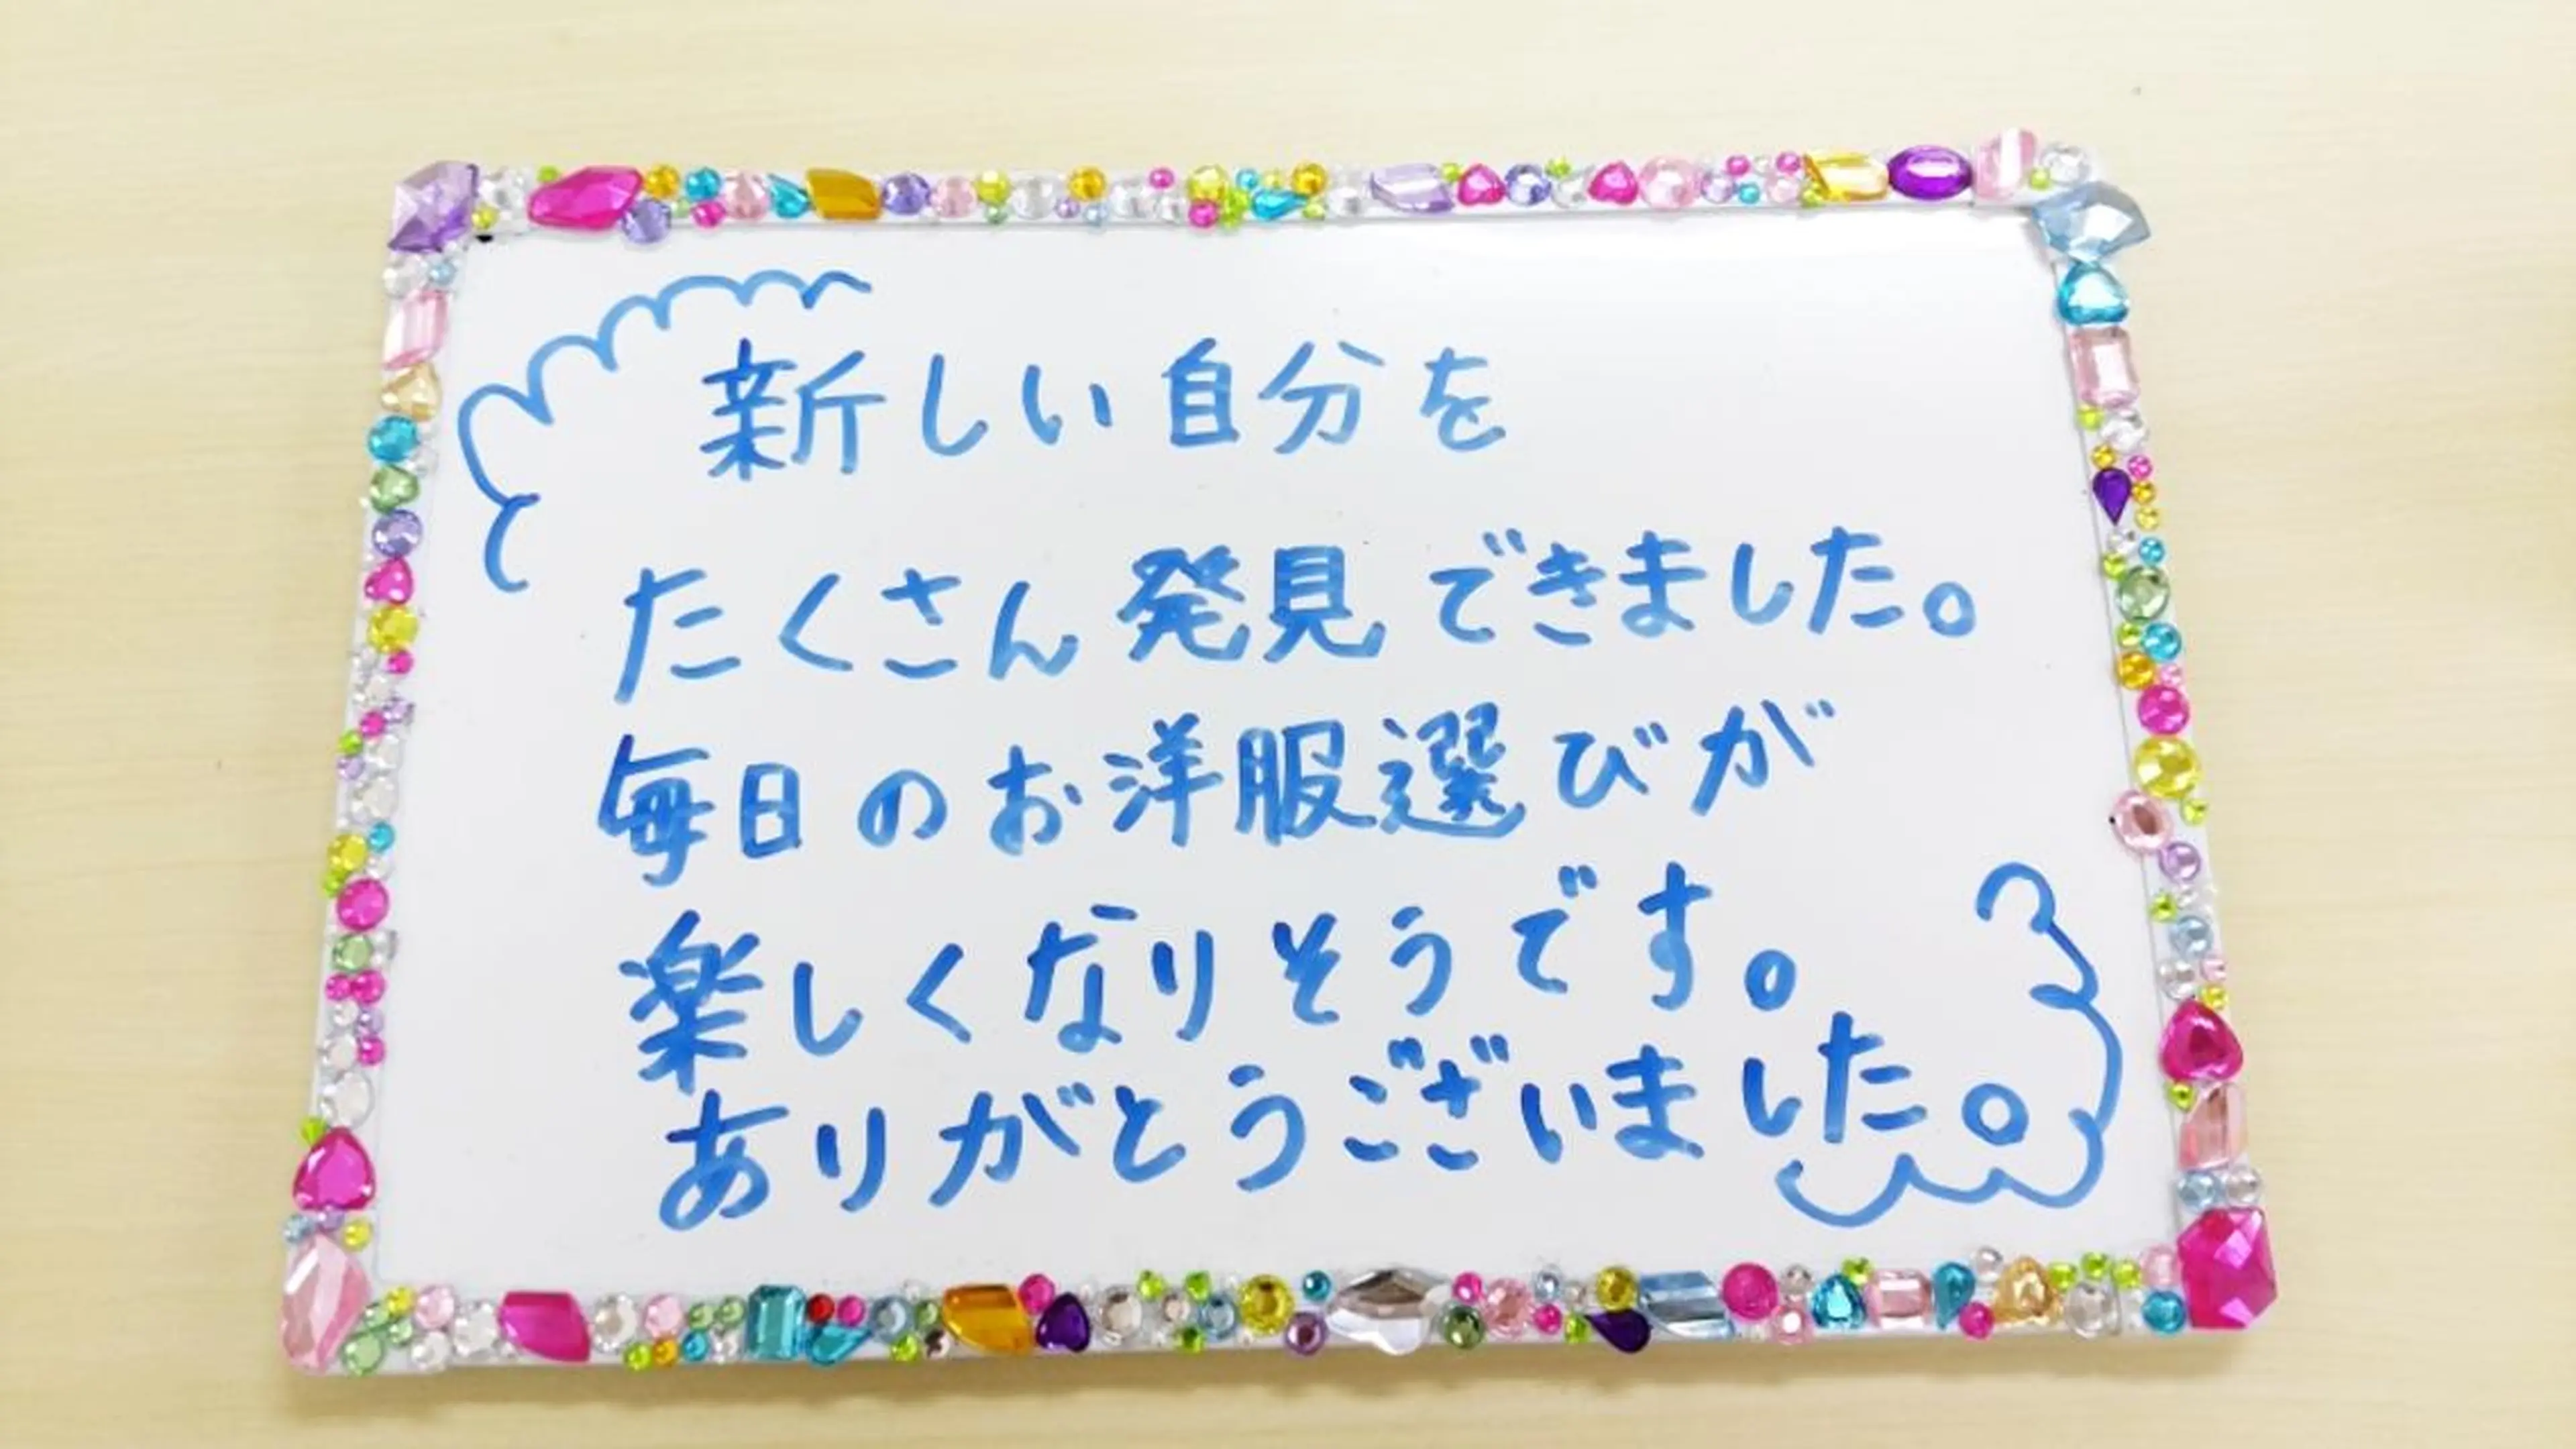 新しい自分を
たくさん発見できました。
毎日のお洋服選びが
楽しくなりそうです。
ありがとうございました。